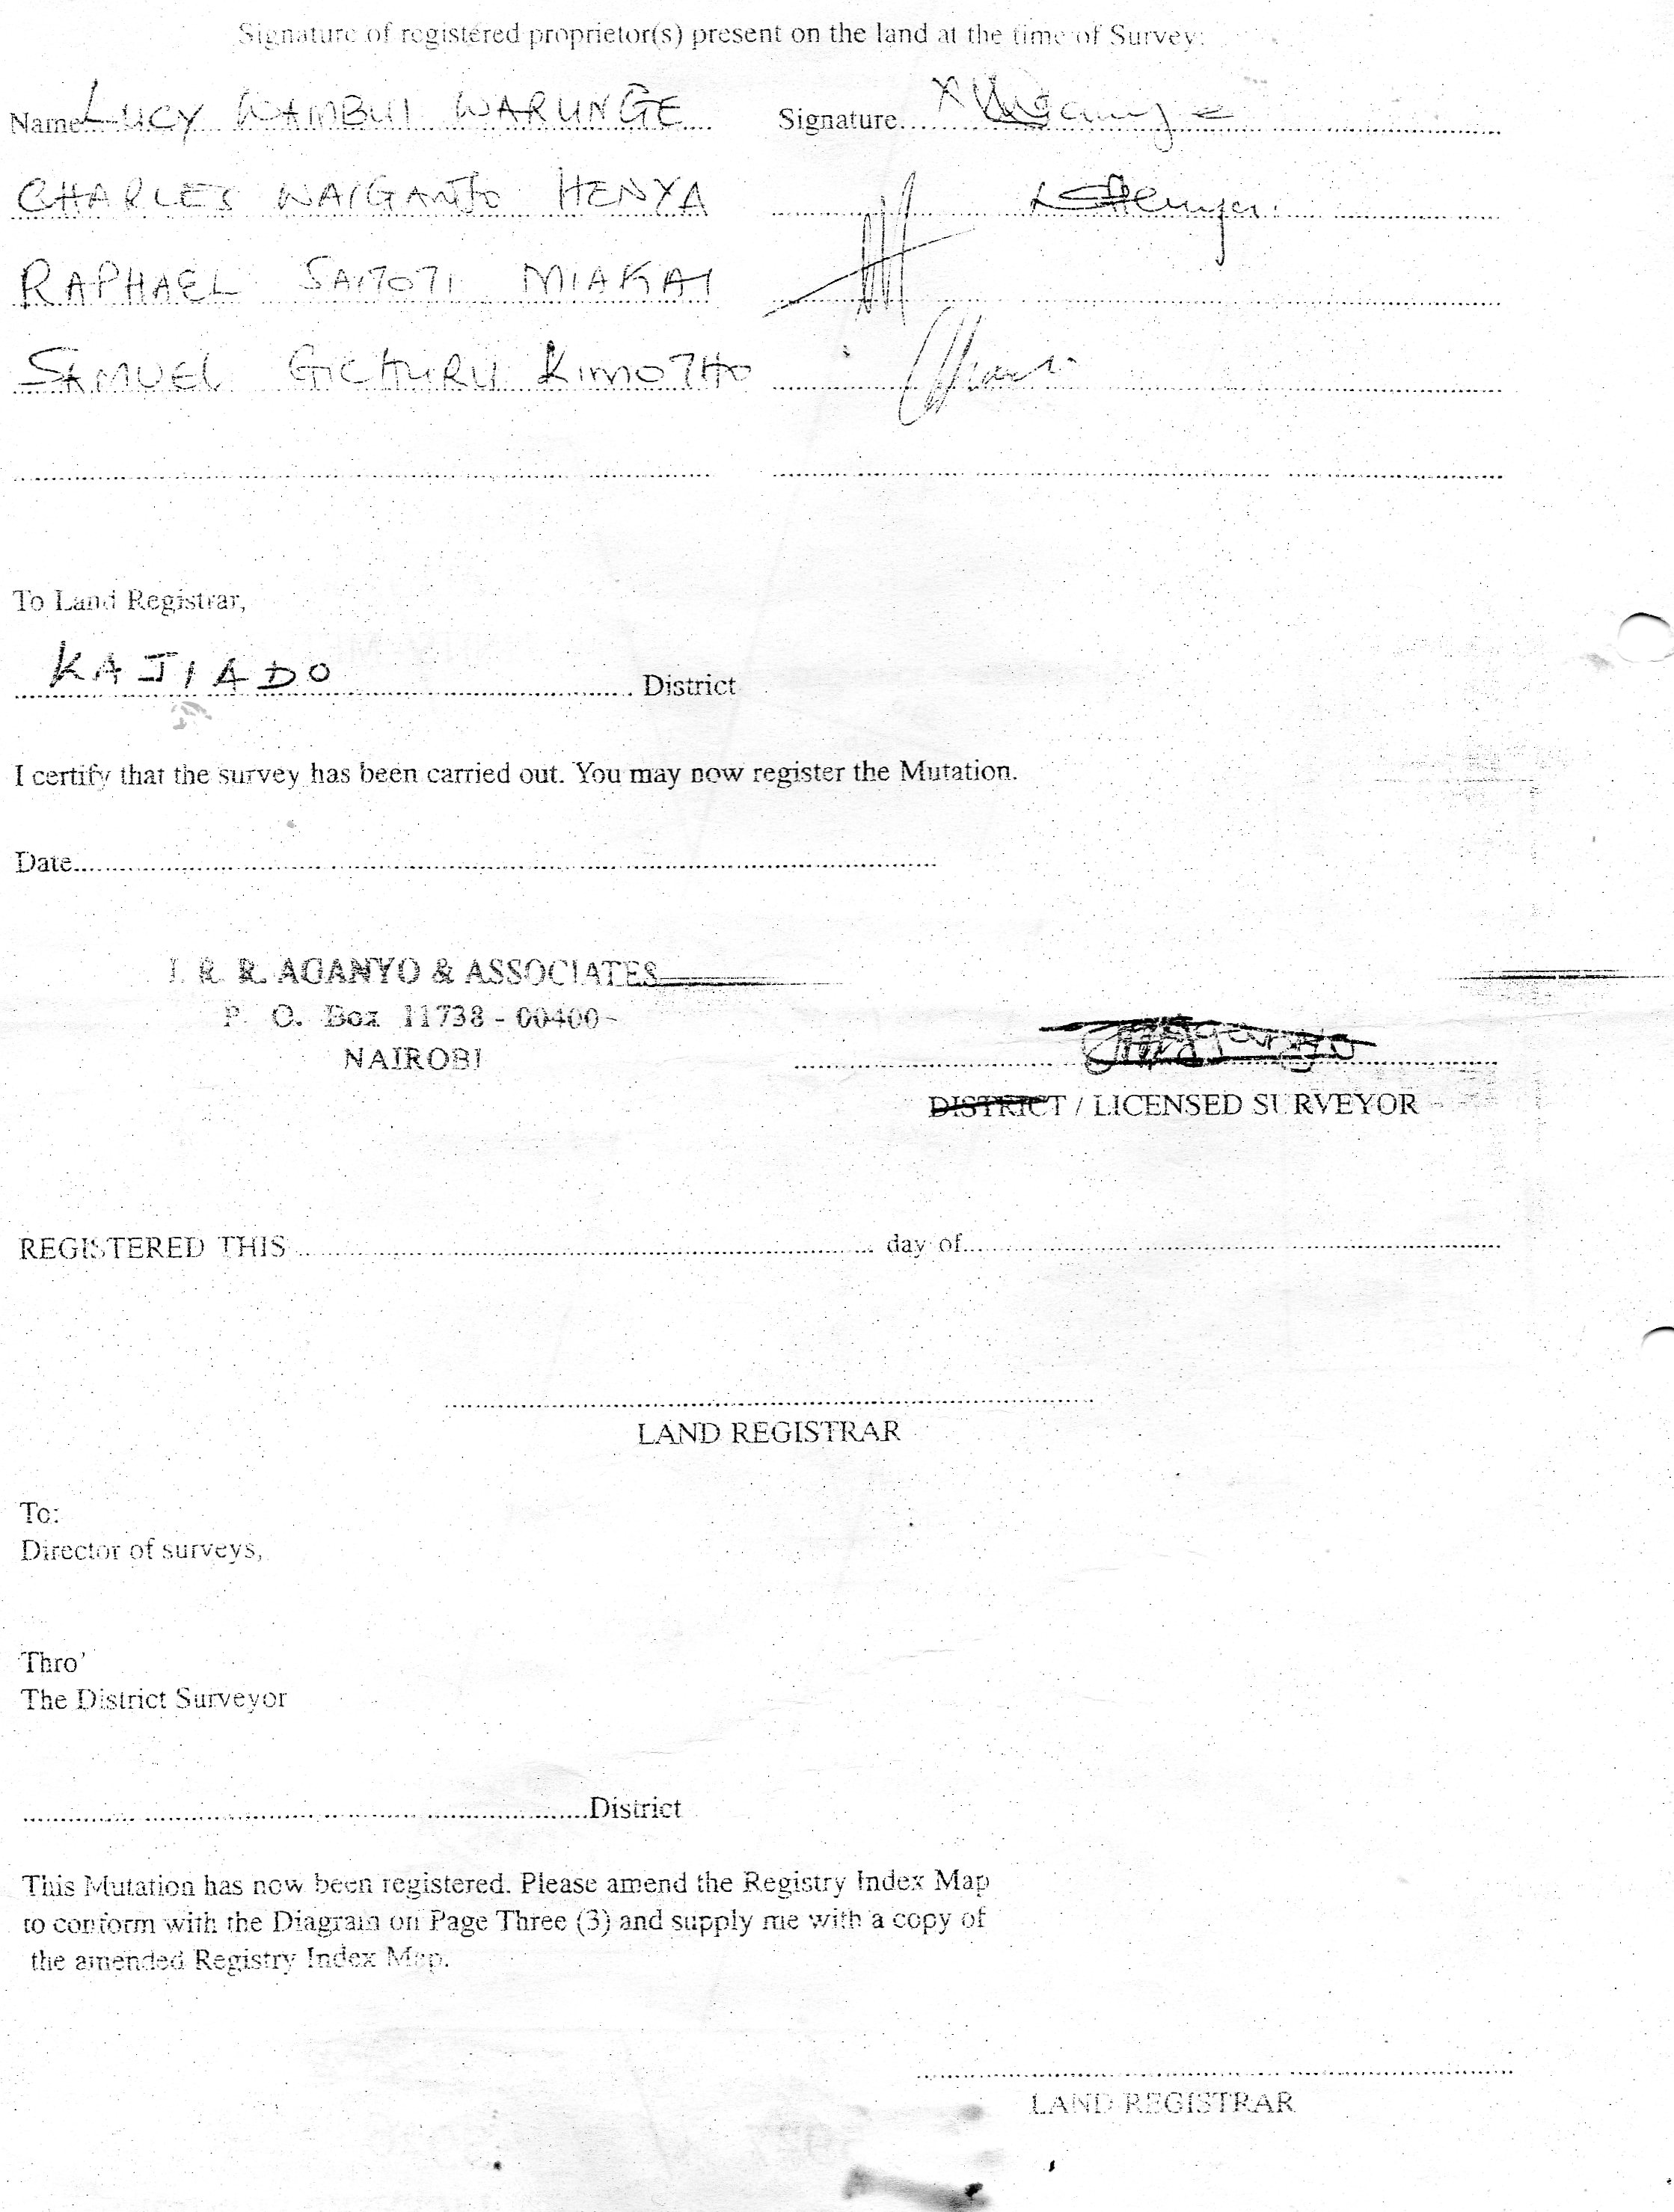 Signature of registered proprietor(s) present on the land at the time of Survey:
Name LUCY WAMBUI WARUNGE Signature
CHARLES WAIGANJO HENYA
RAPHAEL SAITOTI MIAKAI
SAMUEL GICHURU KIMOTHO
To Land Registrar,
KAJIADO District
I certify that the survey has been carried out. You may now register the Mutation.
Date
J. R. R. AGANYO & ASSOCIATES
P. O. Box 11738 - 00400 -
NAIROBI
DISTRICT / LICENSED SURVEYOR
REGISTERED THIS day of
LAND REGISTRAR
To:
Director of surveys,
Thro'
The District Surveyor
District
This Mutation has now been registered. Please amend the Registry Index Map
to conform with the Diagram on Page Three (3) and supply me with a copy of
the amended Registry Index Map.
LAND REGISTRAR